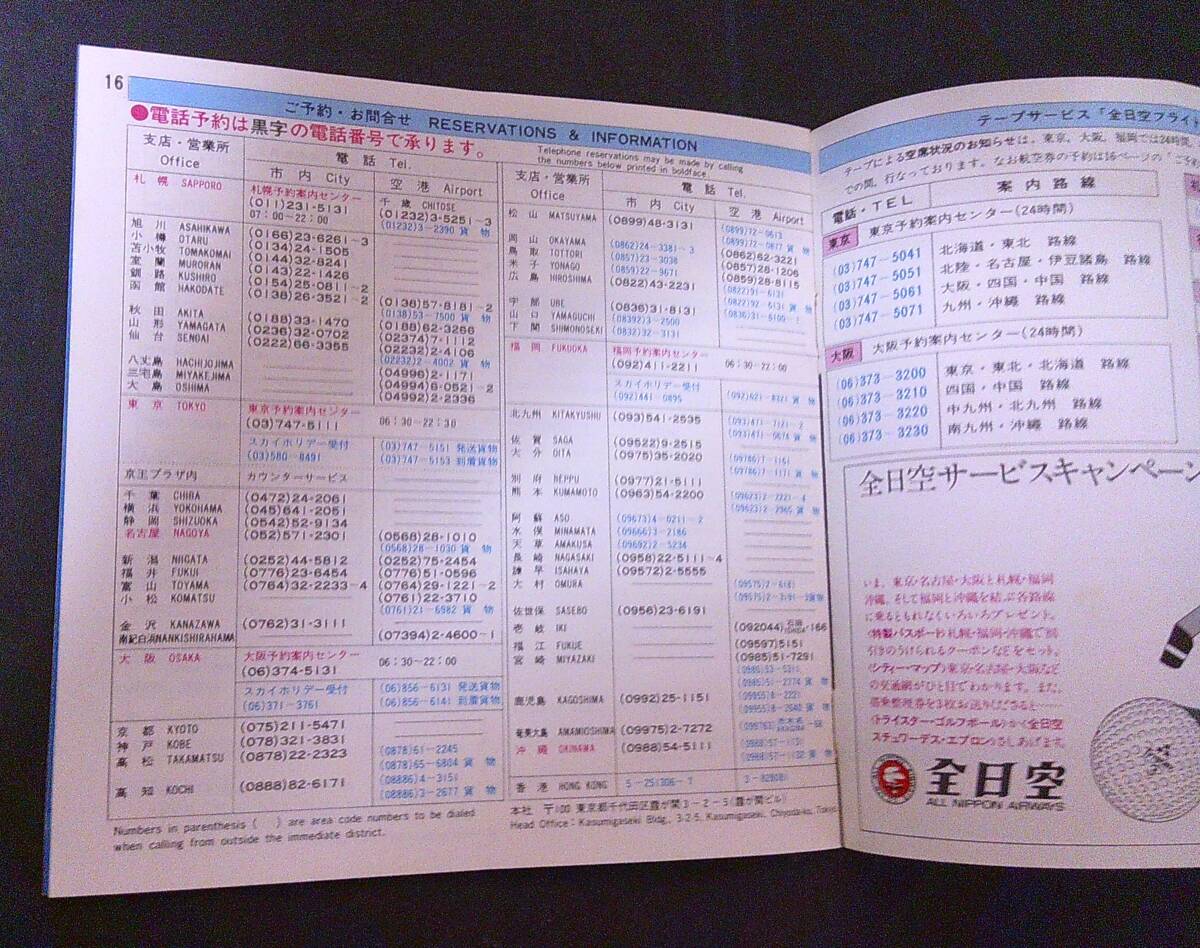 16
ご予約・お問合せ RESERVATIONS & INFORMATION
●電話予約は黒字の電話番号で承ります。
Telephone reservations may be made by calling
the numbers below printed in boldface.
支店・営業所 Office
電話 Tel.
市内 City
空港 Airport
札幌 SAPPORO 札幌予約案内センター
(011)231-5131
07:00~22:00
千歳 CHITOSE
(01232)3-5251~3
(01232)3-2390 貨物
旭川 ASAHIKAWA (0166)23-6261~3
小樽 OTARU (0134)24-1505
苫小牧 TOMAKOMAI (0144)32-8241
室蘭 MURORAN (0143)22-1426
釧路 KUSHIRO (0154)25-0811~2
函館 HAKODATE (0138)26-3521~2 (0138)57-8181~2
(0138)53-7500 貨物
秋田 AKITA (0188)33-1470 (0188)62-3266
山形 YAMAGATA (0236)32-0702 (02374)7-1112
仙台 SENDAI (0222)66-3355 (02232)2-4106
(02232)2-4002 貨物
八丈島 HACHIJOJIMA (04996)2-1171
三宅島 MIYAKEJIMA (04994)6-0521~2
大島 OSHIMA (04992)2-2336
東京 TOKYO 東京予約案内センター
(03)747-5111 06:30~22:30
スカイホリデー受付
(03)580-8491
(03)747-5151 発送貨物
(03)747-5153 到着貨物
京王プラザ内 カウンターサービス
千葉 CHIBA (0472)24-2061
横浜 YOKOHAMA (045)641-2051
静岡 SHIZUOKA (0542)52-9134
名古屋 NAGOYA (052)571-2301 (0568)28-1010
(0568)28-1030 貨物
新潟 NIIGATA (0252)44-5812 (0252)75-2454
福井 FUKUI (0776)23-6454 (0776)51-0596
富山 TOYAMA (0764)32-2233~4 (0764)29-1221~2
小松 KOMATSU (0761)22-3710
(0761)21-6982 貨物
金沢 KANAZAWA (0762)31-3111
南紀白浜 NANKISHIRAHAMA (07394)2-4600~1
大阪 OSAKA 大阪予約案内センター
(06)374-5131 06:30~22:00
スカイホリデー受付
(06)371-3761
(06)856-6131 発送貨物
(06)856-6141 到着貨物
京都 KYOTO (075)211-5471
神戸 KOBE (078)321-3831
高松 TAKAMATSU (0878)22-2323 (0878)61-2245
(0878)65-6804 貨物
高知 KOCHI (0888)82-6171 (08886)4-3151
(08886)3-2677 貨物
Numbers in parenthesis ( ) are area code numbers to be dialed
when calling from outside the immediate district.
支店・営業所 Office
電話 Tel.
市内 City
空港 Airport
松山 MATSUYAMA (0899)48-3131 (0899)72-0613
(0899)72-0877 貨物
岡山 OKAYAMA (0862)24-3381~3 (0862)62-3221
鳥取 TOTTORI (0857)23-3038 (0857)28-1206
米子 YONAGO (0859)22-9671 (0859)28-8115
広島 HIROSHIMA (0822)43-2231 (0822)91-6131
(0822)92-6131 貨物
宇部 UBE (0836)31-8131 (0836)31-6100
山口 YAMAGUCHI (08392)3-2500
下関 SHIMONOSEKI (0832)32-3131
福岡 FUKUOKA 福岡予約案内センター
(092)411-2211 06:30~22:00
スカイホリデー受付
(092)441-0895
(092)621-8321 貨物
北九州 KITAKYUSHU (093)541-2535 (093)471-7121~2
(093)471-5674 貨物
佐賀 SAGA (09522)9-2515
大分 OITA (0975)35-2020 (09786)7-1161
(09786)7-1171 貨物
別府 BEPPU (0977)21-5111
熊本 KUMAMOTO (0963)54-2200 (09623)2-2221~4
(09623)2-2965 貨物
阿蘇 ASO (09673)4-0211~2
水俣 MINAMATA (09666)3-2186
天草 AMAKUSA (09692)2-5234
長崎 NAGASAKI (0958)22-5111~4
諫早 ISAHAYA (09572)2-5555
大村 OMURA (09575)2-6181
(09575)2-3191~2 貨物
佐世保 SASEBO (0956)23-6191
壱岐 IKI (092044) 石田 ISHIDA 166
福江 FUKUE (09597)5151
宮崎 MIYAZAKI (0985)51-7291
(0985)53-5311
(0985)51-2774 貨物
鹿児島 KAGOSHIMA (0992)25-1151 (09955)8-2221
(09955)8-2640 貨物
奄美大島 AMAMIOSHIMA (09975)2-7272
沖縄 OKINAWA (0988)54-5111 (0988)57-1131
(0988)57-1132 貨物
香港 HONG KONG 5-251306~7 3-828081
本社 〒100 東京都千代田区霞が関3-2-5(霞が関ビル)
Head Office: Kasumigaseki Bldg., 3-2-5, Kasumigaseki, Chiyoda-ku, Tokyo
テープサービス「全日空フライト
テープによる空席状況のお知らせは、東京、大阪、福岡では24時間、
での間、行なっております。なお航空券の予約は16ページの「ご予
電話・TEL 案内路線
東京 東京予約案内センター(24時間)
(03)747-5041 北海道・東北 路線
(03)747-5051 北陸・名古屋・伊豆諸島 路線
(03)747-5061 大阪・四国・中国 路線
(03)747-5071 九州・沖縄 路線
大阪 大阪予約案内センター(24時間)
(06)373-3200 東京・東北・北海道 路線
(06)373-3210 四国・中国 路線
(06)373-3220 中九州・北九州 路線
(06)373-3230 南九州・沖縄 路線
全日空サービスキャンペーン
いま、東京・名古屋・大阪と札幌・福岡
沖縄、そして福岡と沖縄を結ぶ各路線
に乗るともれなくいろいろプレゼント。
〈特製パスポート〉札幌・福岡・沖縄で割
引きのうけられるクーポンなどをセット。
〈シティー・マップ〉東京・名古屋・大阪など
の交通網がひと目でわかります。また、
搭乗整理券を3枚お送りくださると……
〈トライスター・ゴルフボール〉か〈全日空
スチュワーデス・エプロン〉さしあげます。
全日空
ALL NIPPON AIRWAYS